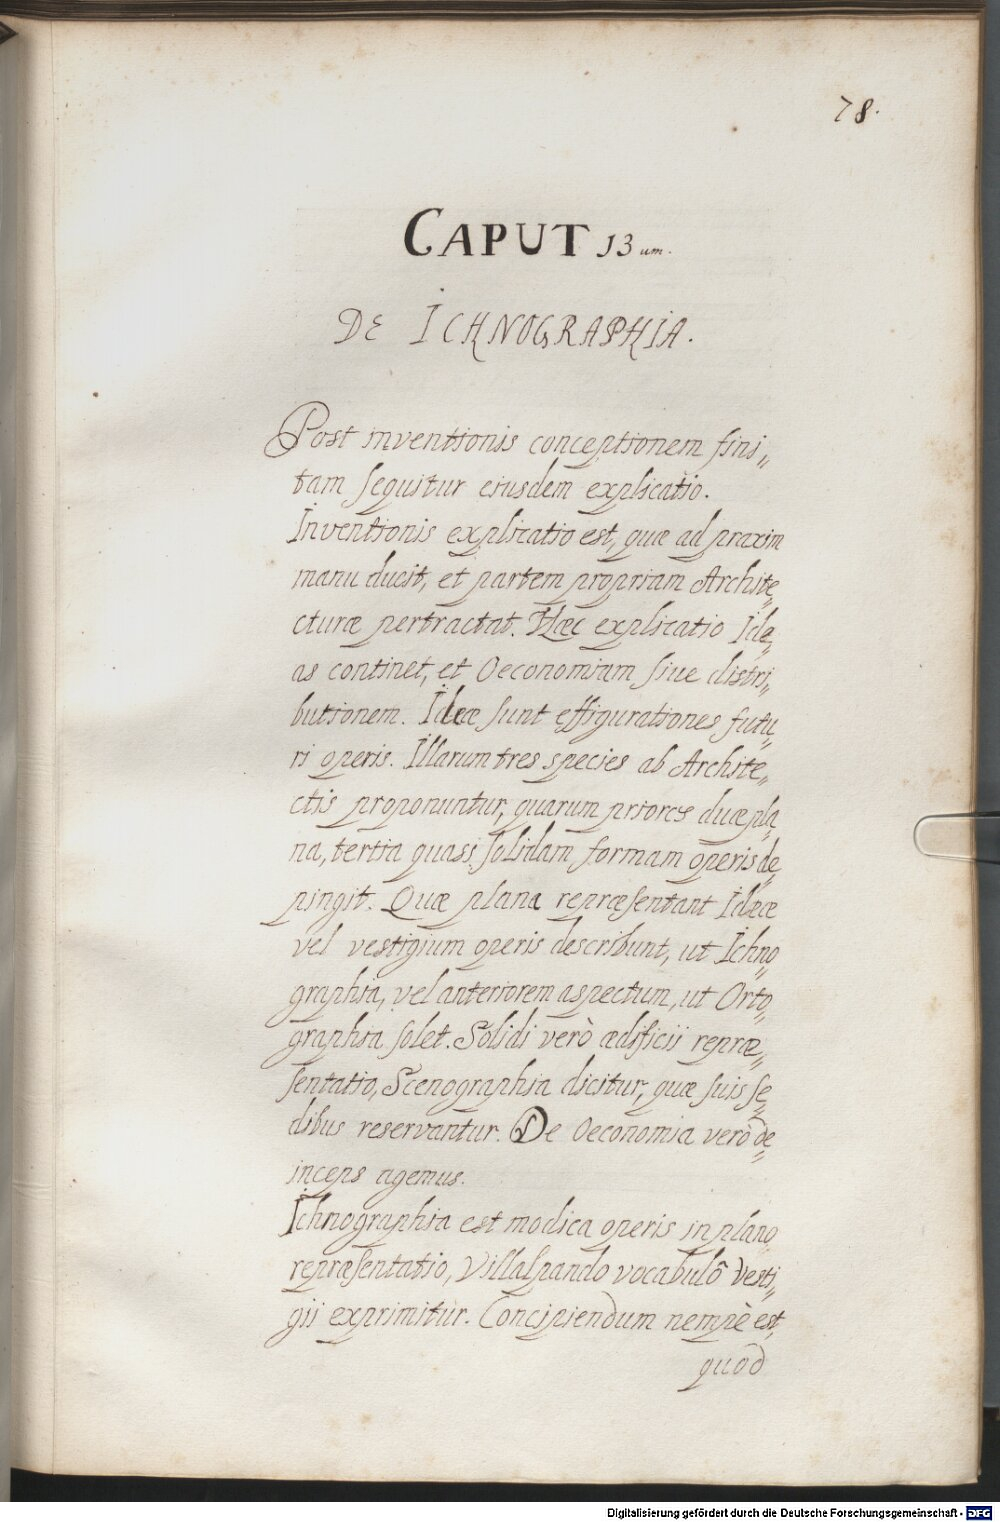 78.
CAPUT 13um.
DE ICHNOGRAPHIA.
Post inventionis conceptionem fini„
tam sequitur eiusdem explicatio.
Inventionis explicatio est, quæ ad praxim
manu ducit, et partem propriam Archite„
cturæ pertractat. Hæc explicatio Ide„
as continet, et Oeconomiam sive distri„
butionem. Ideæ sunt effigurationes futu„
ri operis. Illarum tres species ab Archite„
ctis proponuntur, quarum priores duæ pla„
na, tertia quasi solidam formam operis de„
pingit. Quæ plana repræsentant Ideæ
vel vestigium operis describunt, ut Ichno„
graphia, vel anteriorem aspectum, ut Orto„
graphia solet. Solidi verò ædificii repræ„
sentatio, Scenographia dicitur, quæ suis se„
dibus reservantur. De Oeconomia verò de„
inceps agemus.
Ichnographia est modica operis in plano
repræsentatio, Villalpando vocabulô Vesti„
gii exprimitur. Concipiendum nempè est,
quod
Digitalisierung gefördert durch die Deutsche Forschungsgemeinschaft - DFG